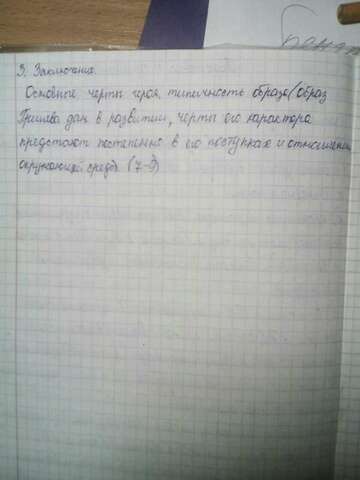 3. Заключение.
Основные черты героя, типичность образа (образ
Гринёва дан в развитии, черты его характера
предстают постепенно в его поступках и отношении
окружающей среде) (7-9)